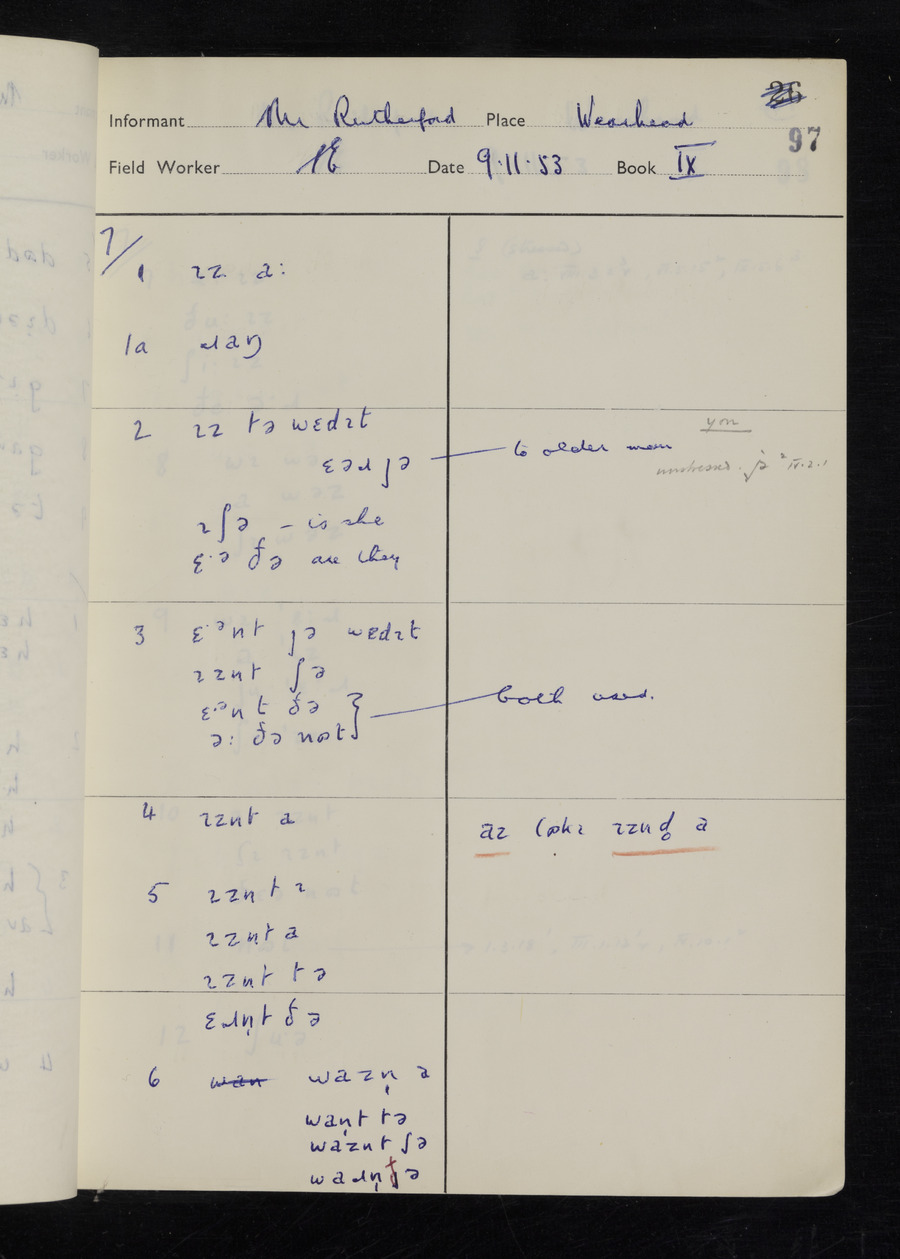 26
Informant Mr Rutherford Place Wearhead
97
Field Worker Date 9.11.53 Book IX
7/
1 ɪz a:
1a ɹaŋ
2 ɪz tə wɛdɪt
ɛəɹ ʃə — to older man
you
unstressed. jə ² IV.2.1
ɪ ʃə – is she
ɛ·ə ðə are they
3 ɛ·ənt ʃə wɛdɪt
ɪznt ʃə
ɛ·ənt ðə } both used.
ə: ðə nɒt
4 ɪznt a
az ɪznd̥ a
5 ɪzn̩t ɪ
ɪzn̩t a
ɪzn̩t tə
ɛɹn̩t ðə
6 wan wazn̩ a
wan̩t tə
waznt ʃə
waɹn̩t ðə